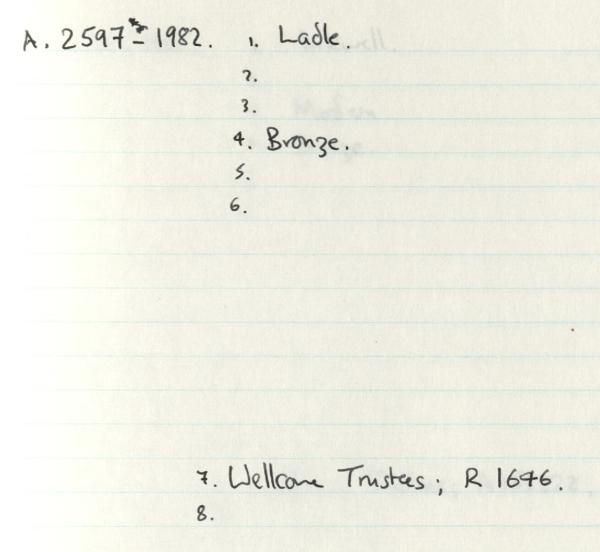 A. 2597 - 1982. 1. Ladle.
2.
3.
4. Bronze.
5.
6.
7. Wellcome Trustees; R 1646.
8.